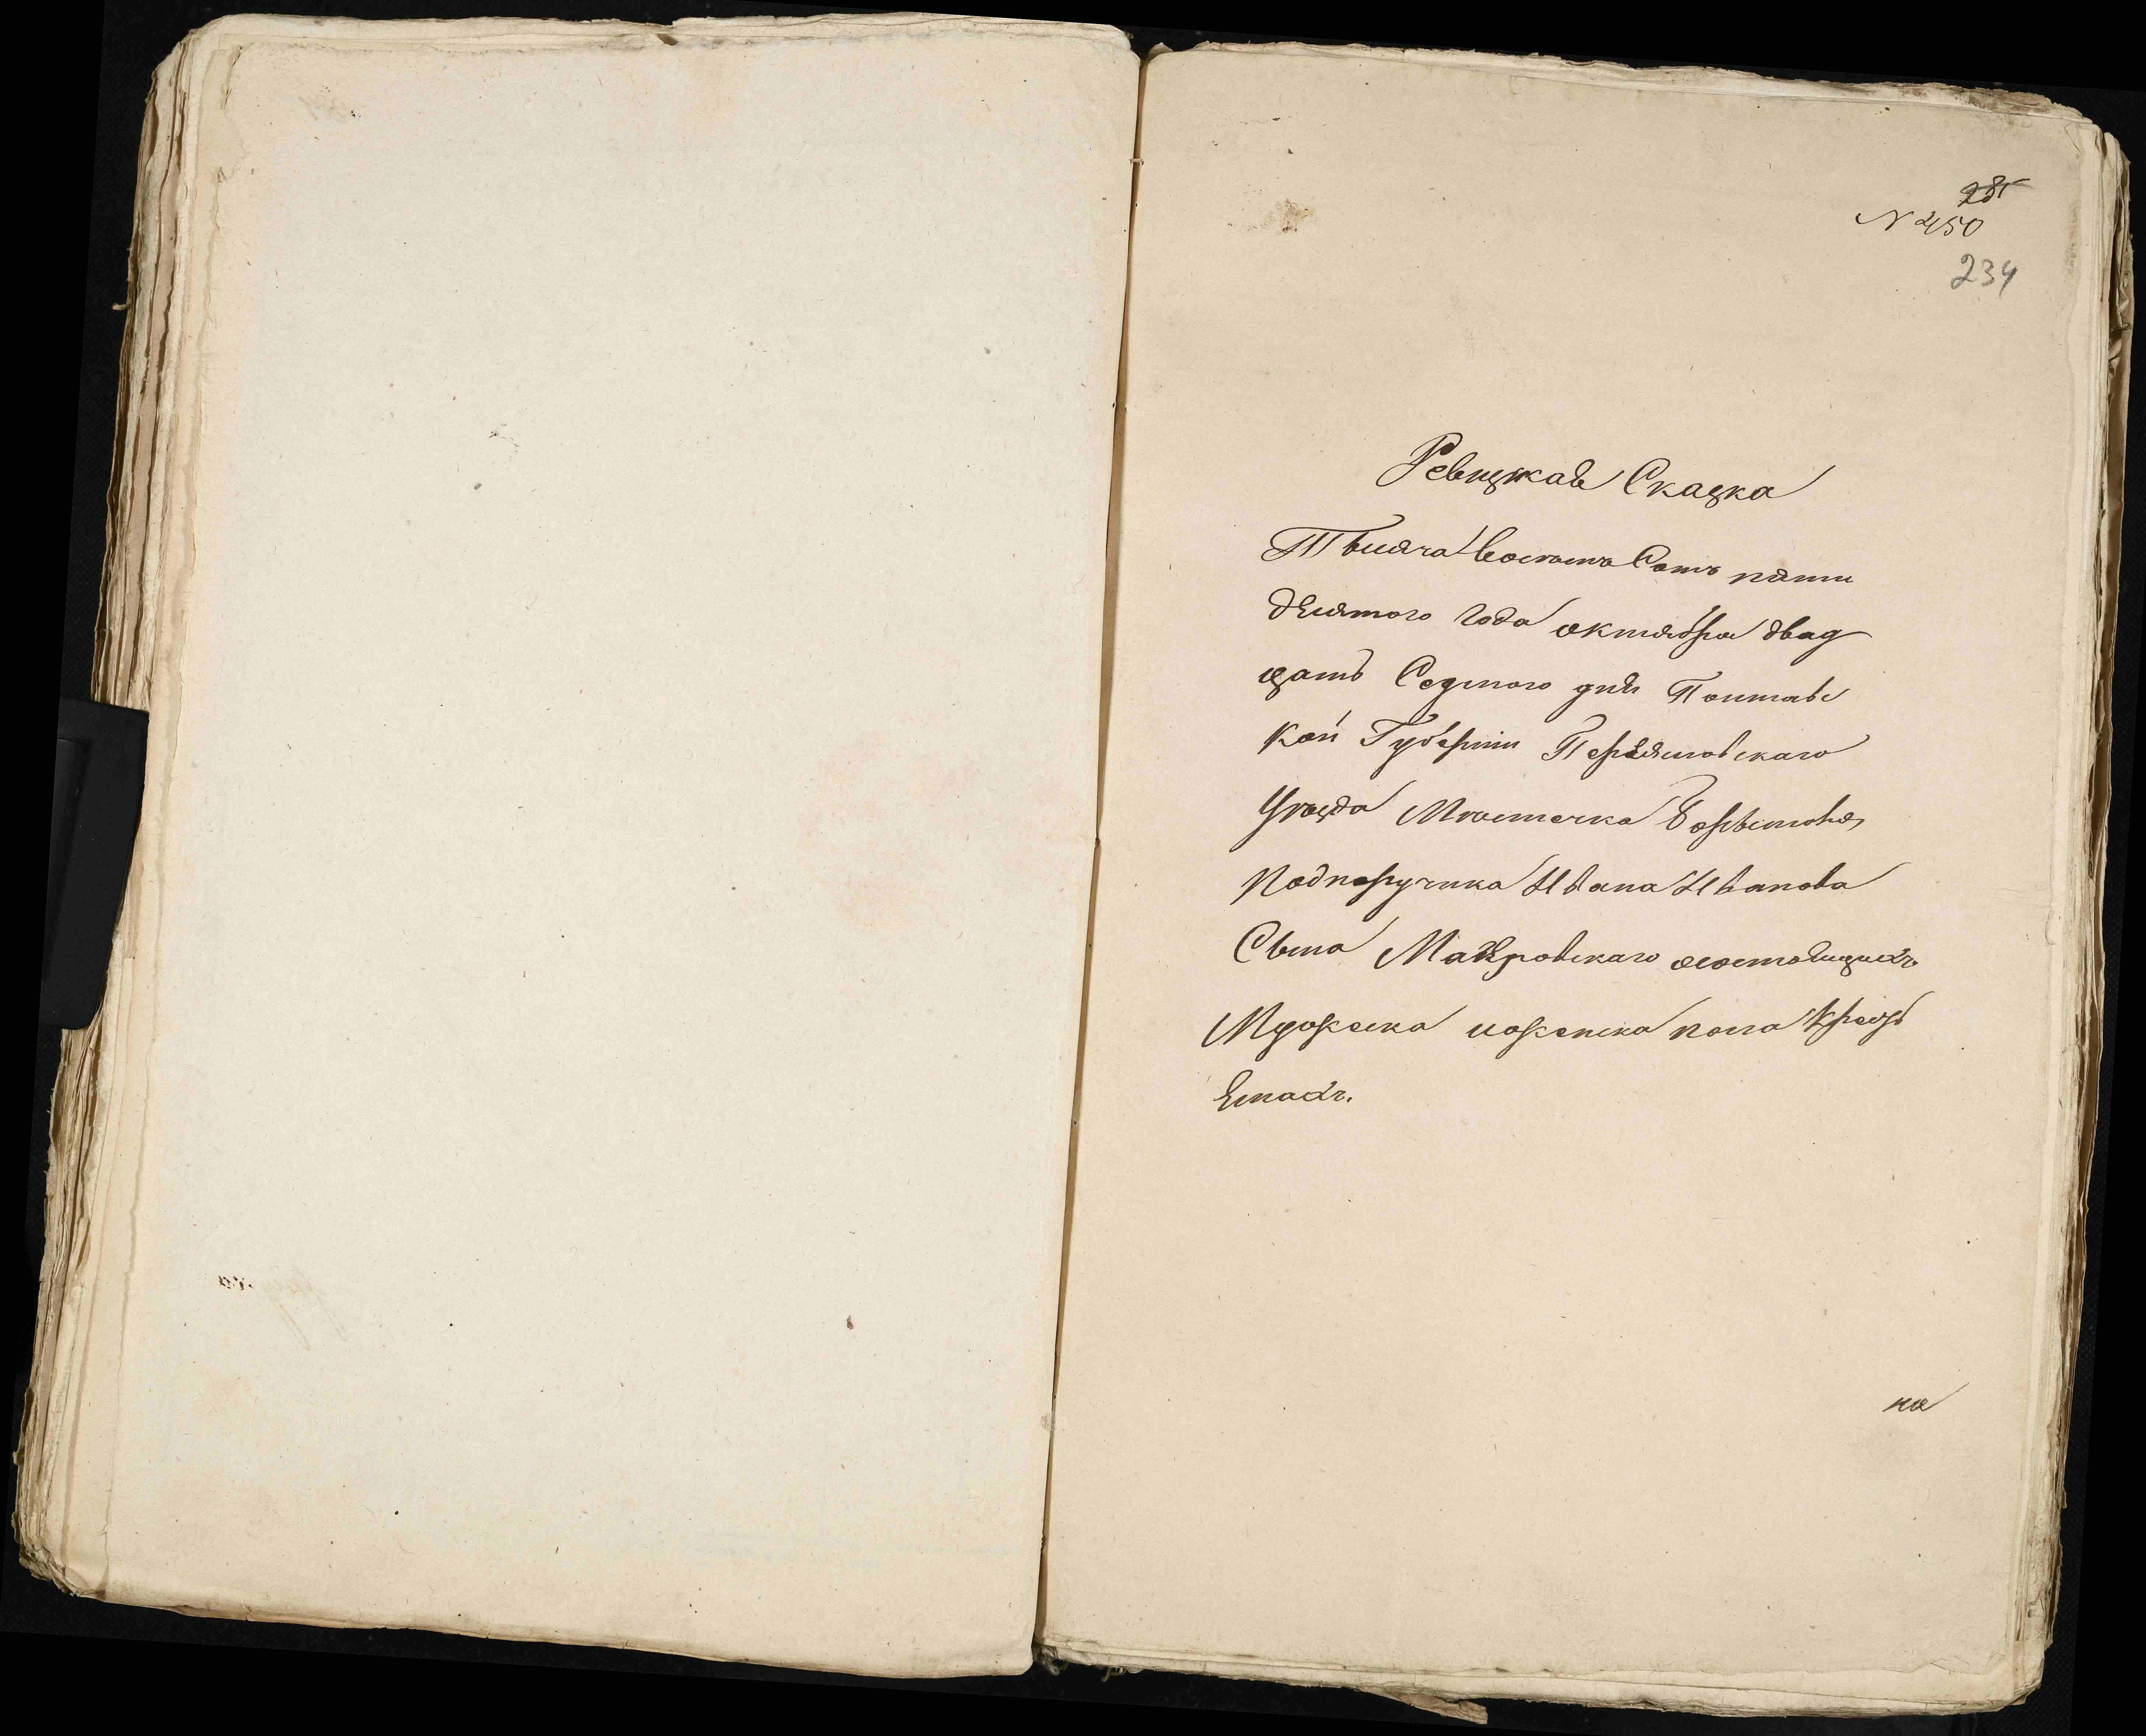 285
N 450
234
Ревизкая Сказка
Тысяча восемь Сотъ пяти
десятого года октября двад
цать Седмого дня Полтавс
кой Губернии Переяславскаго
Уѣзда Мѣстечка Борисполя
Подпоручика Ивана Иванова
Сына Макровскаго осостоящихъ
Мужеска иженска пола Кресть
янахъ.
на